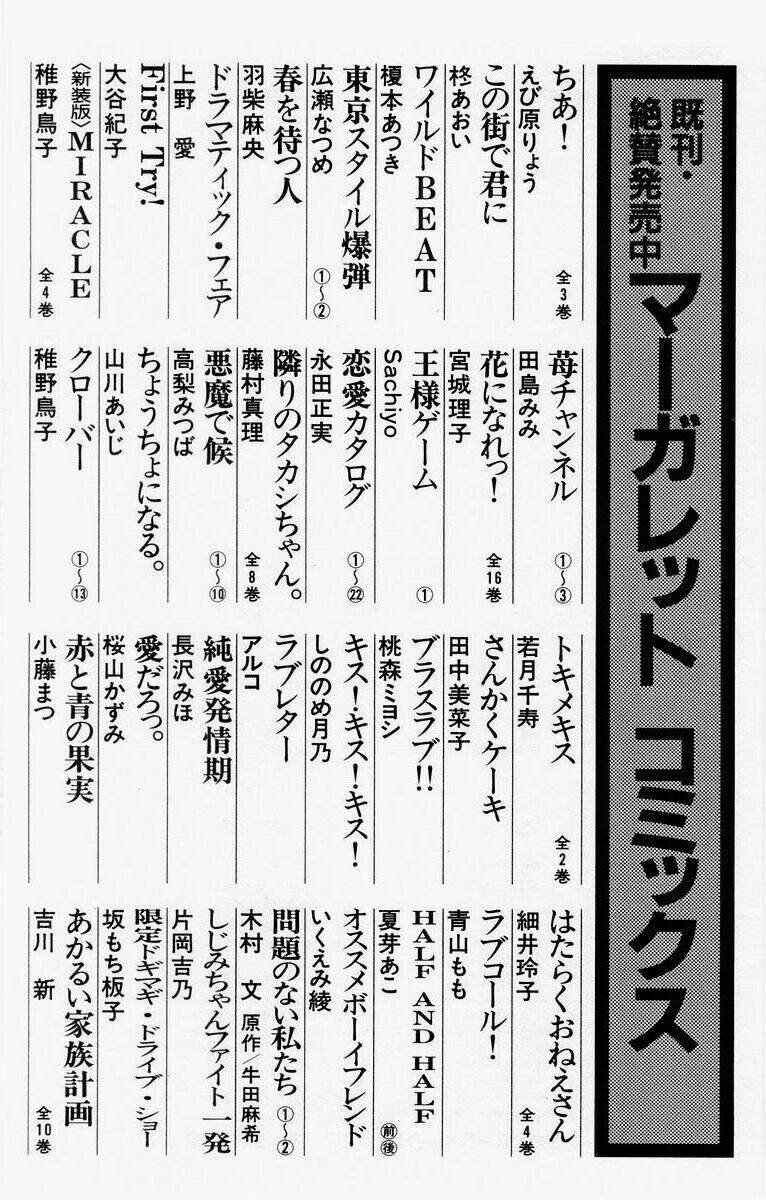 既刊・
絶賛発売中
マーガレット コミックス
ちあ!
えび原りょう
全3巻
この街で君に
柊あおい
ワイルドBEAT
榎本あつき
東京スタイル爆弾
広瀬なつめ
①〜②
春を待つ人
羽柴麻央
ドラマティック・フェア
上野 愛
First Try!
大谷紀子
〈新装版〉MIRACLE
稚野鳥子
全4巻
苺チャンネル
田島みみ
①〜③
花になれっ!
宮城理子
全16巻
王様ゲーム
Sachiyo
①
恋愛カタログ
永田正実
①〜㉒
隣りのタカシちゃん。
藤村真理
全8巻
悪魔で候
高梨みつば
①〜⑩
ちょうちょになる。
山川あいじ
クローバー
稚野鳥子
①〜⑬
トキメキス
若月千寿
全2巻
さんかくケーキ
田中美菜子
ブラスラブ!!
桃森ミヨシ
キス!キス!キス!
しののめ月乃
ラブレター
アルコ
純愛発情期
長沢みほ
愛だろっ。
桜山かずみ
赤と青の果実
小藤まつ
はたらくおねえさん
細井玲子
全4巻
ラブコール!
青山もも
HALF AND HALF
夏芽あこ
前後
オススメボーイフレンド
いくえみ綾
問題のない私たち
木村 文 原作/牛田麻希
①〜②
しじみちゃんファイト一発
片岡吉乃
限定ドギマギ・ドライブ・ショー
坂もち板子
あかるい家族計画
吉川 新
全10巻